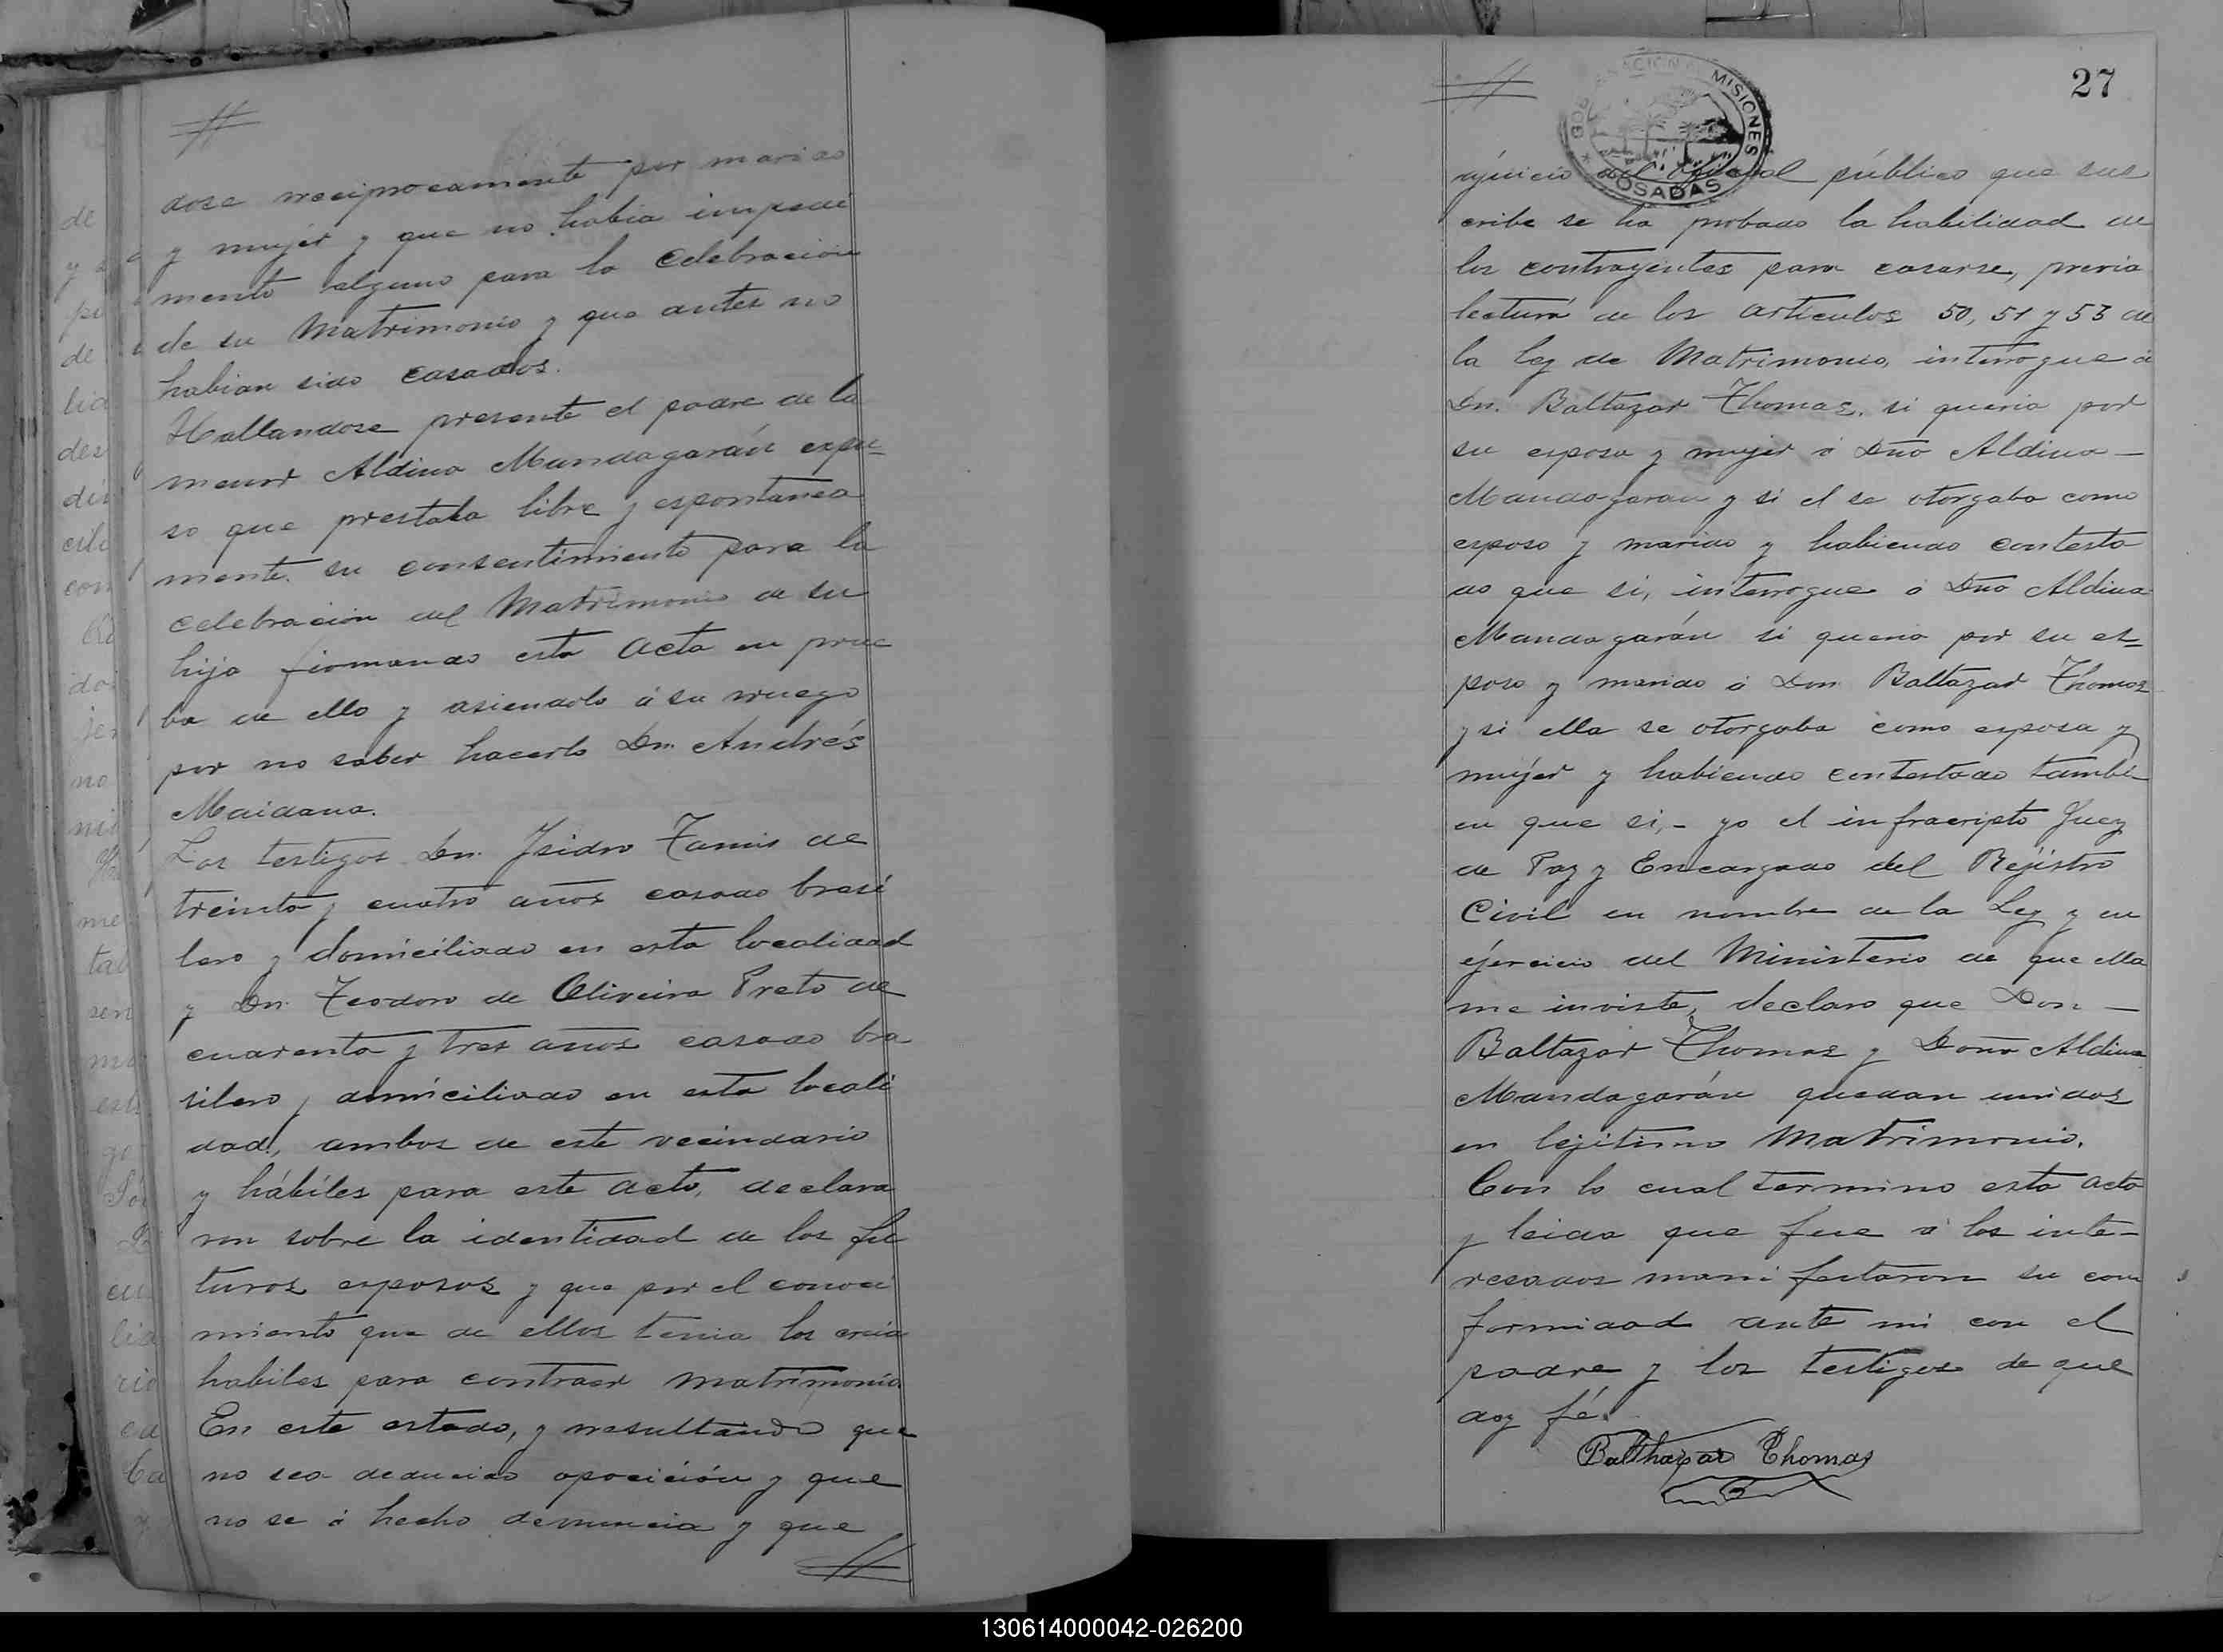 dose reciprocamente por marido
y mujér y que no habia impedi
mento alguno para la Celebracion
de su Matrimonio y que antes no
habian sido casados.
Hallandose presente el padre de la
menor Aldina Mandagarán expu=
so que prestaba libre y espontanea
mente su consentimiento para la
celebracion del Matrimonio de su
hija firmando esta acta en prue
ba de ello y asiendolo á su ruego
por no saber hacerlo Dn. Andrés
Maidana.
Los testigos Dn. Isidro de
treinta y cuatro años casado brasi
lero y domiciliado en esta localidad
y Dn. Teodoro de Oliveira Preto de
cuarenta y tres años casado bra
silero y domiciliado en esta locali
dad, ambos de este vecindario
y hábiles para este acto, declara
ron sobre la identidad de los fu
turos esposos y que por el conoci
miento que de ellos tenia los creia
habiles para contraer matrimonio.
En este estado, y resultando que
no sea deducido oposición y que
no se á hecho denuncia y que
27
GOBERNACION MISIONES
POSADAS
ajuicio del oficial público que sus
cribe se ha probado la habilidad de
los contrayentes para casarse, previa
lectura de los articulos 50, 51 y 53 de
la ley de Matrimonio, interrogue á
Dn. Baltazar Thomas, si queria por
su esposa y mujer á Dña Aldina —
Mandagaran y si el se otorgaba como
esposo y marido y habiendo contesta
do que si, interrogue á Dña Aldina
Mandagarán si queria por su es=
poso y marido á Don Baltazar Thomas
y si ella se otorgaba como esposa y
mujér y habiendo contestado tambi
en que si, - yo el infracripto Juez
de Paz y Encargado del Rejistro
Civil en nombre de la Ley y en
éjercicio del Ministerio de que ella
me inviste, declaro que Don —
Baltazar Thomas y Doña Aldina
Mandagarán quedan unidos
en lejitimo Matrimonio.
Con lo cual termino esta acta
y leida que fue á los inte-
resados manifestaron su con
formidad ante mi con el
padre y los testigos de que
doy fé.
Balthazar Thomas
130614000042-026200